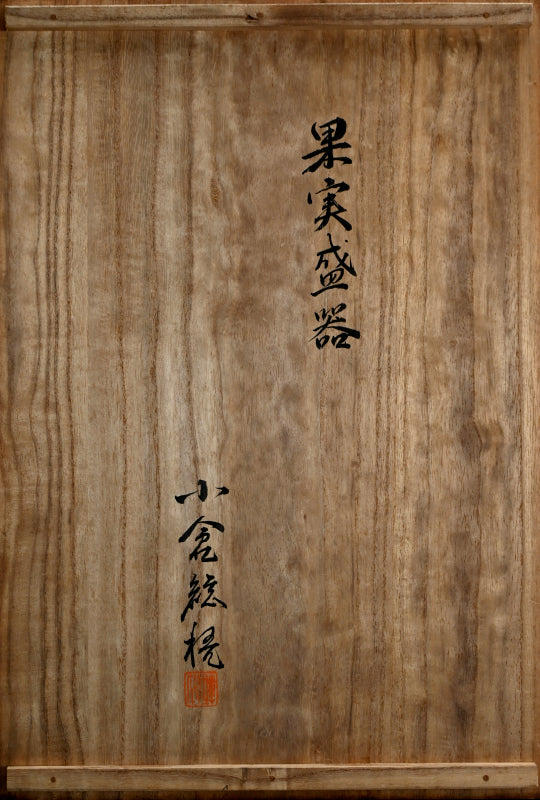 果実盛器
小倉総梲